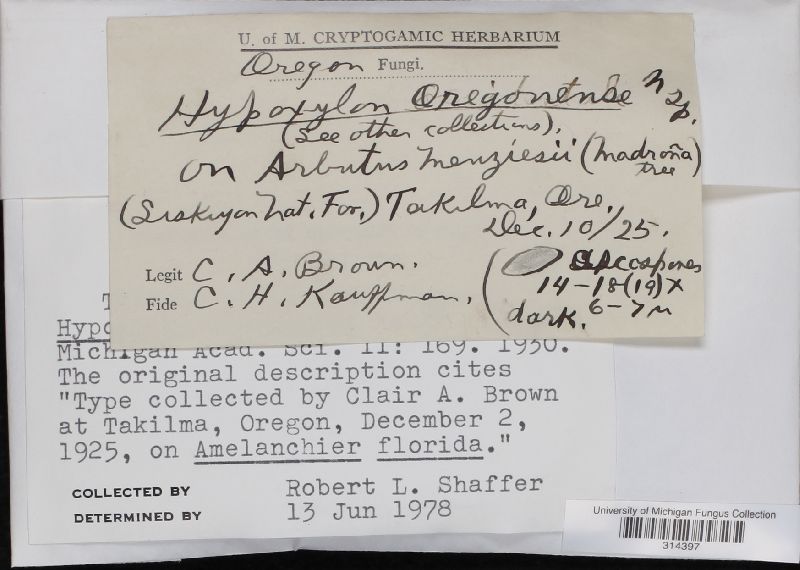 U. of M. CRYPTOGAMIC HERBARIUM
Oregon Fungi.
Hypoxylon Oregonense n sp.
(See other collections).
on Arbutus menziesii (madroña tree)
(Siskiyou Nat. For.) Takilma, Ore.,
Dec. 10/25.
Legit C. A. Brown.
Fide C. H. Kauffman.
(ascospores
14-18(19) x
6-7 µ
dark.
T
Hypo
Michigan Acad. Sci. 11: 169. 1930.
The original description cites
"Type collected by Clair A. Brown
at Takilma, Oregon, December 2,
1925, on Amelanchier florida."
COLLECTED BY Robert L. Shaffer
DETERMINED BY 13 Jun 1978
University of Michigan Fungus Collection
314397